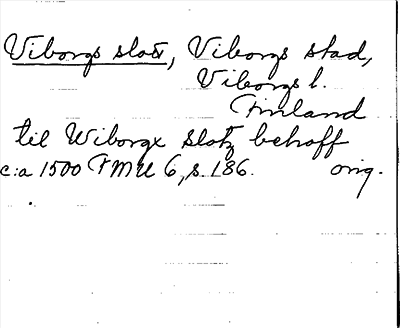 Viborgs slott, Viborgs stad,
Viborgs l.
Finland
til Wiborgx slotz behoff
c:a 1500 FMU 6, s. 186. orig.